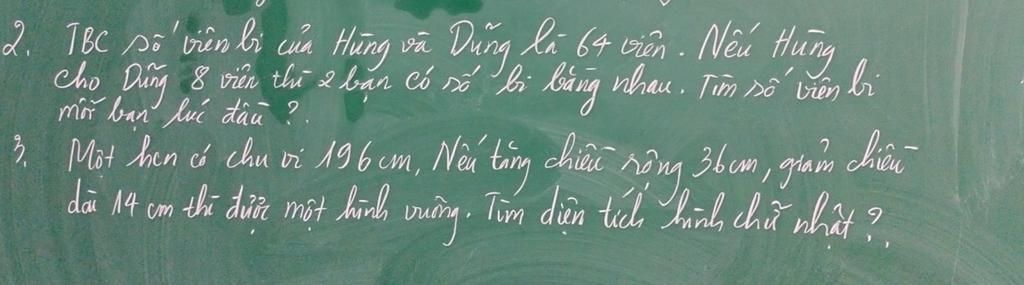 2. TBC số viên bi của Hùng và Dũng là 64 viên. Nếu Hùng
cho Dũng 8 viên thì 2 bạn có số bi bằng nhau. Tìm số viên bi
mỗi bạn lúc đầu ?.
3. Một hcn có chu vi 196 cm, Nếu tăng chiều rộng 36 cm, giảm chiều
dài 14 cm thì được một hình vuông. Tìm diện tích hình chữ nhật ?